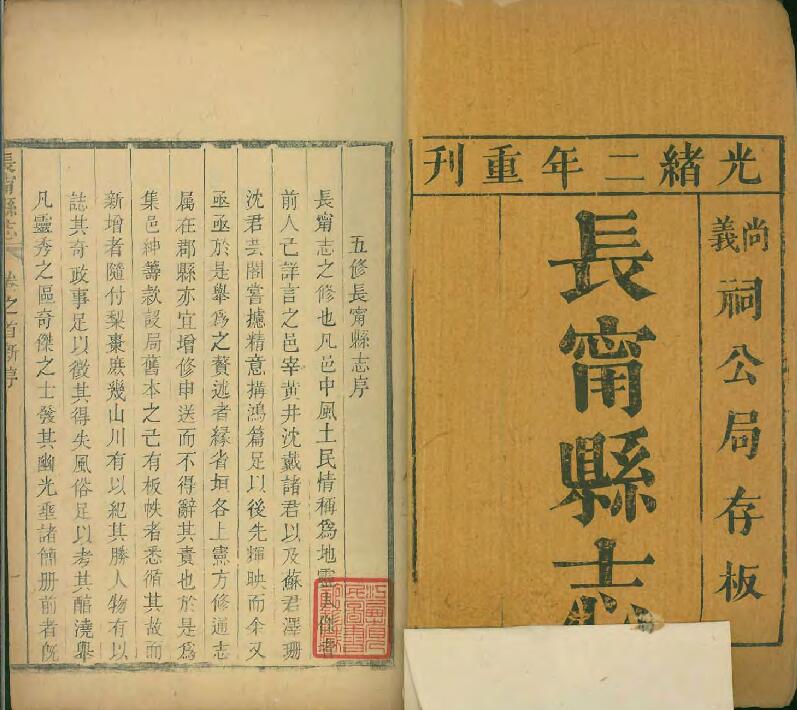 光緒二年重刊
尚義祠公局存板
長甯縣志
五修長甯縣志序
長甯志之修也凡邑中風土民情稱為地靈人傑者
前人已詳言之邑宰黃井沈戴諸君以及蘇君澤珊
沈君芸閣嘗攄精意搆鴻篇足以後先輝映而余又
亟亟於是舉為之贅述者緣省垣各上憲方修通志
属在郡縣亦宜增修申送而不得辭其責也於是為
集邑紳籌款設局舊本之已有板帙者悉循其故而
新增者隨付梨棗庶幾山川有以紀其勝人物有以
誌其奇政事足以徵其得失風俗足以考其醕澆舉
凡靈秀之區奇傑之士發其幽光垂諸簡册前者既
長甯縣志 卷之首新序 一